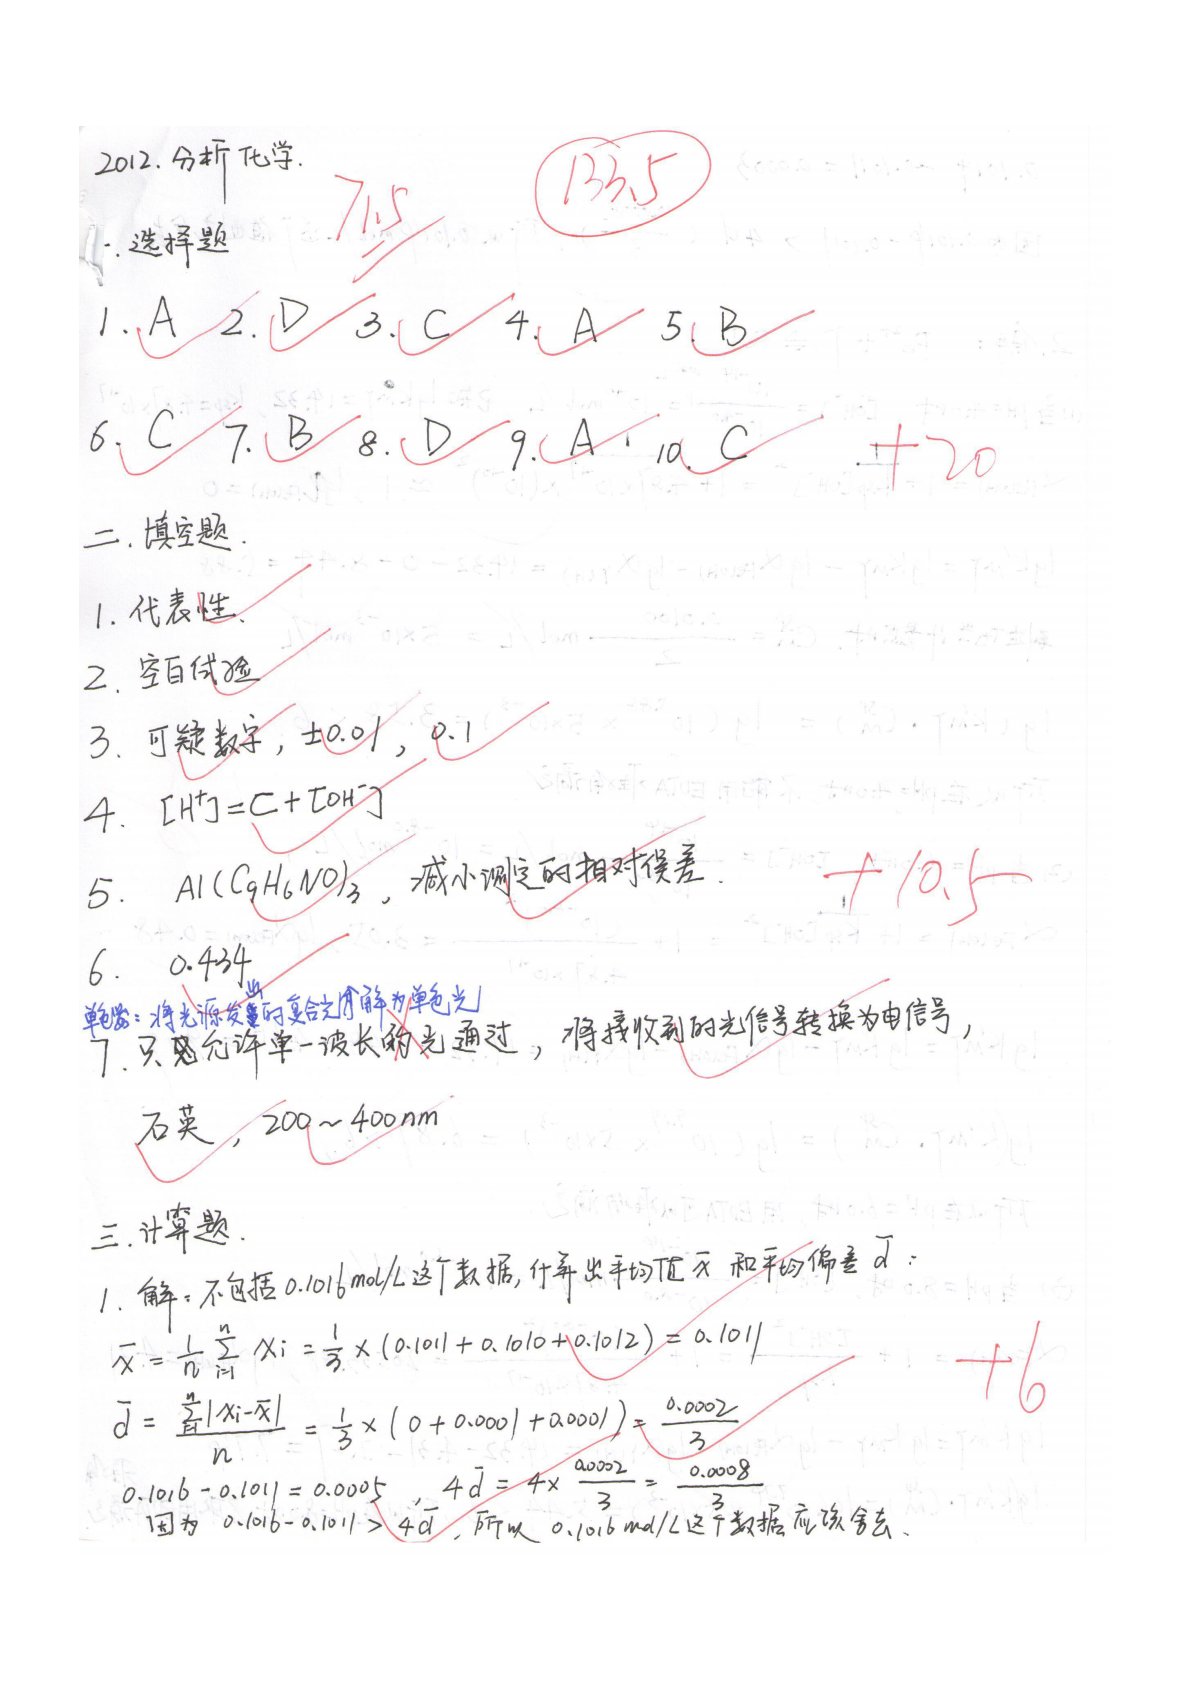 2012.分析化学.
71.5
133.5
一.选择题
1. A 2. D 3. C 4. A 5. B
6. C 7. B 8. D 9. A 10. C
+20
二.填空题.
1. 代表性.
2. 空白试验
3. 可疑数字, ±0.01, 0.1
4. [H⁺]=C+[OH⁻]
5. Al(C₉H₆NO)₃, 减小测定的相对误差.
+10.5
6. 0.434
单色器:将光源发出的复合光分解为单色光
7. 只允许单一波长的光通过, 将接收到的光信号转换为电信号,
石英, 200~400nm
三.计算题.
1. 解:不包括0.1016mol/L这个数据,计算出平均值 x̄ 和平均偏差 d̄:
x̄ = 1/n Σ(i=1→n) xi = 1/3 × (0.1011+0.1010+0.1012) = 0.1011
+6
d̄ = Σ|xi-x̄|/n = 1/3 × (0+0.0001+0.0001) = 0.0002/3
0.1016-0.1011=0.0005, 4d̄ = 4× 0.0002/3 = 0.0008/3
因为 0.1016-0.1011 > 4d̄, 所以 0.1016mol/L这个数据应该舍去.